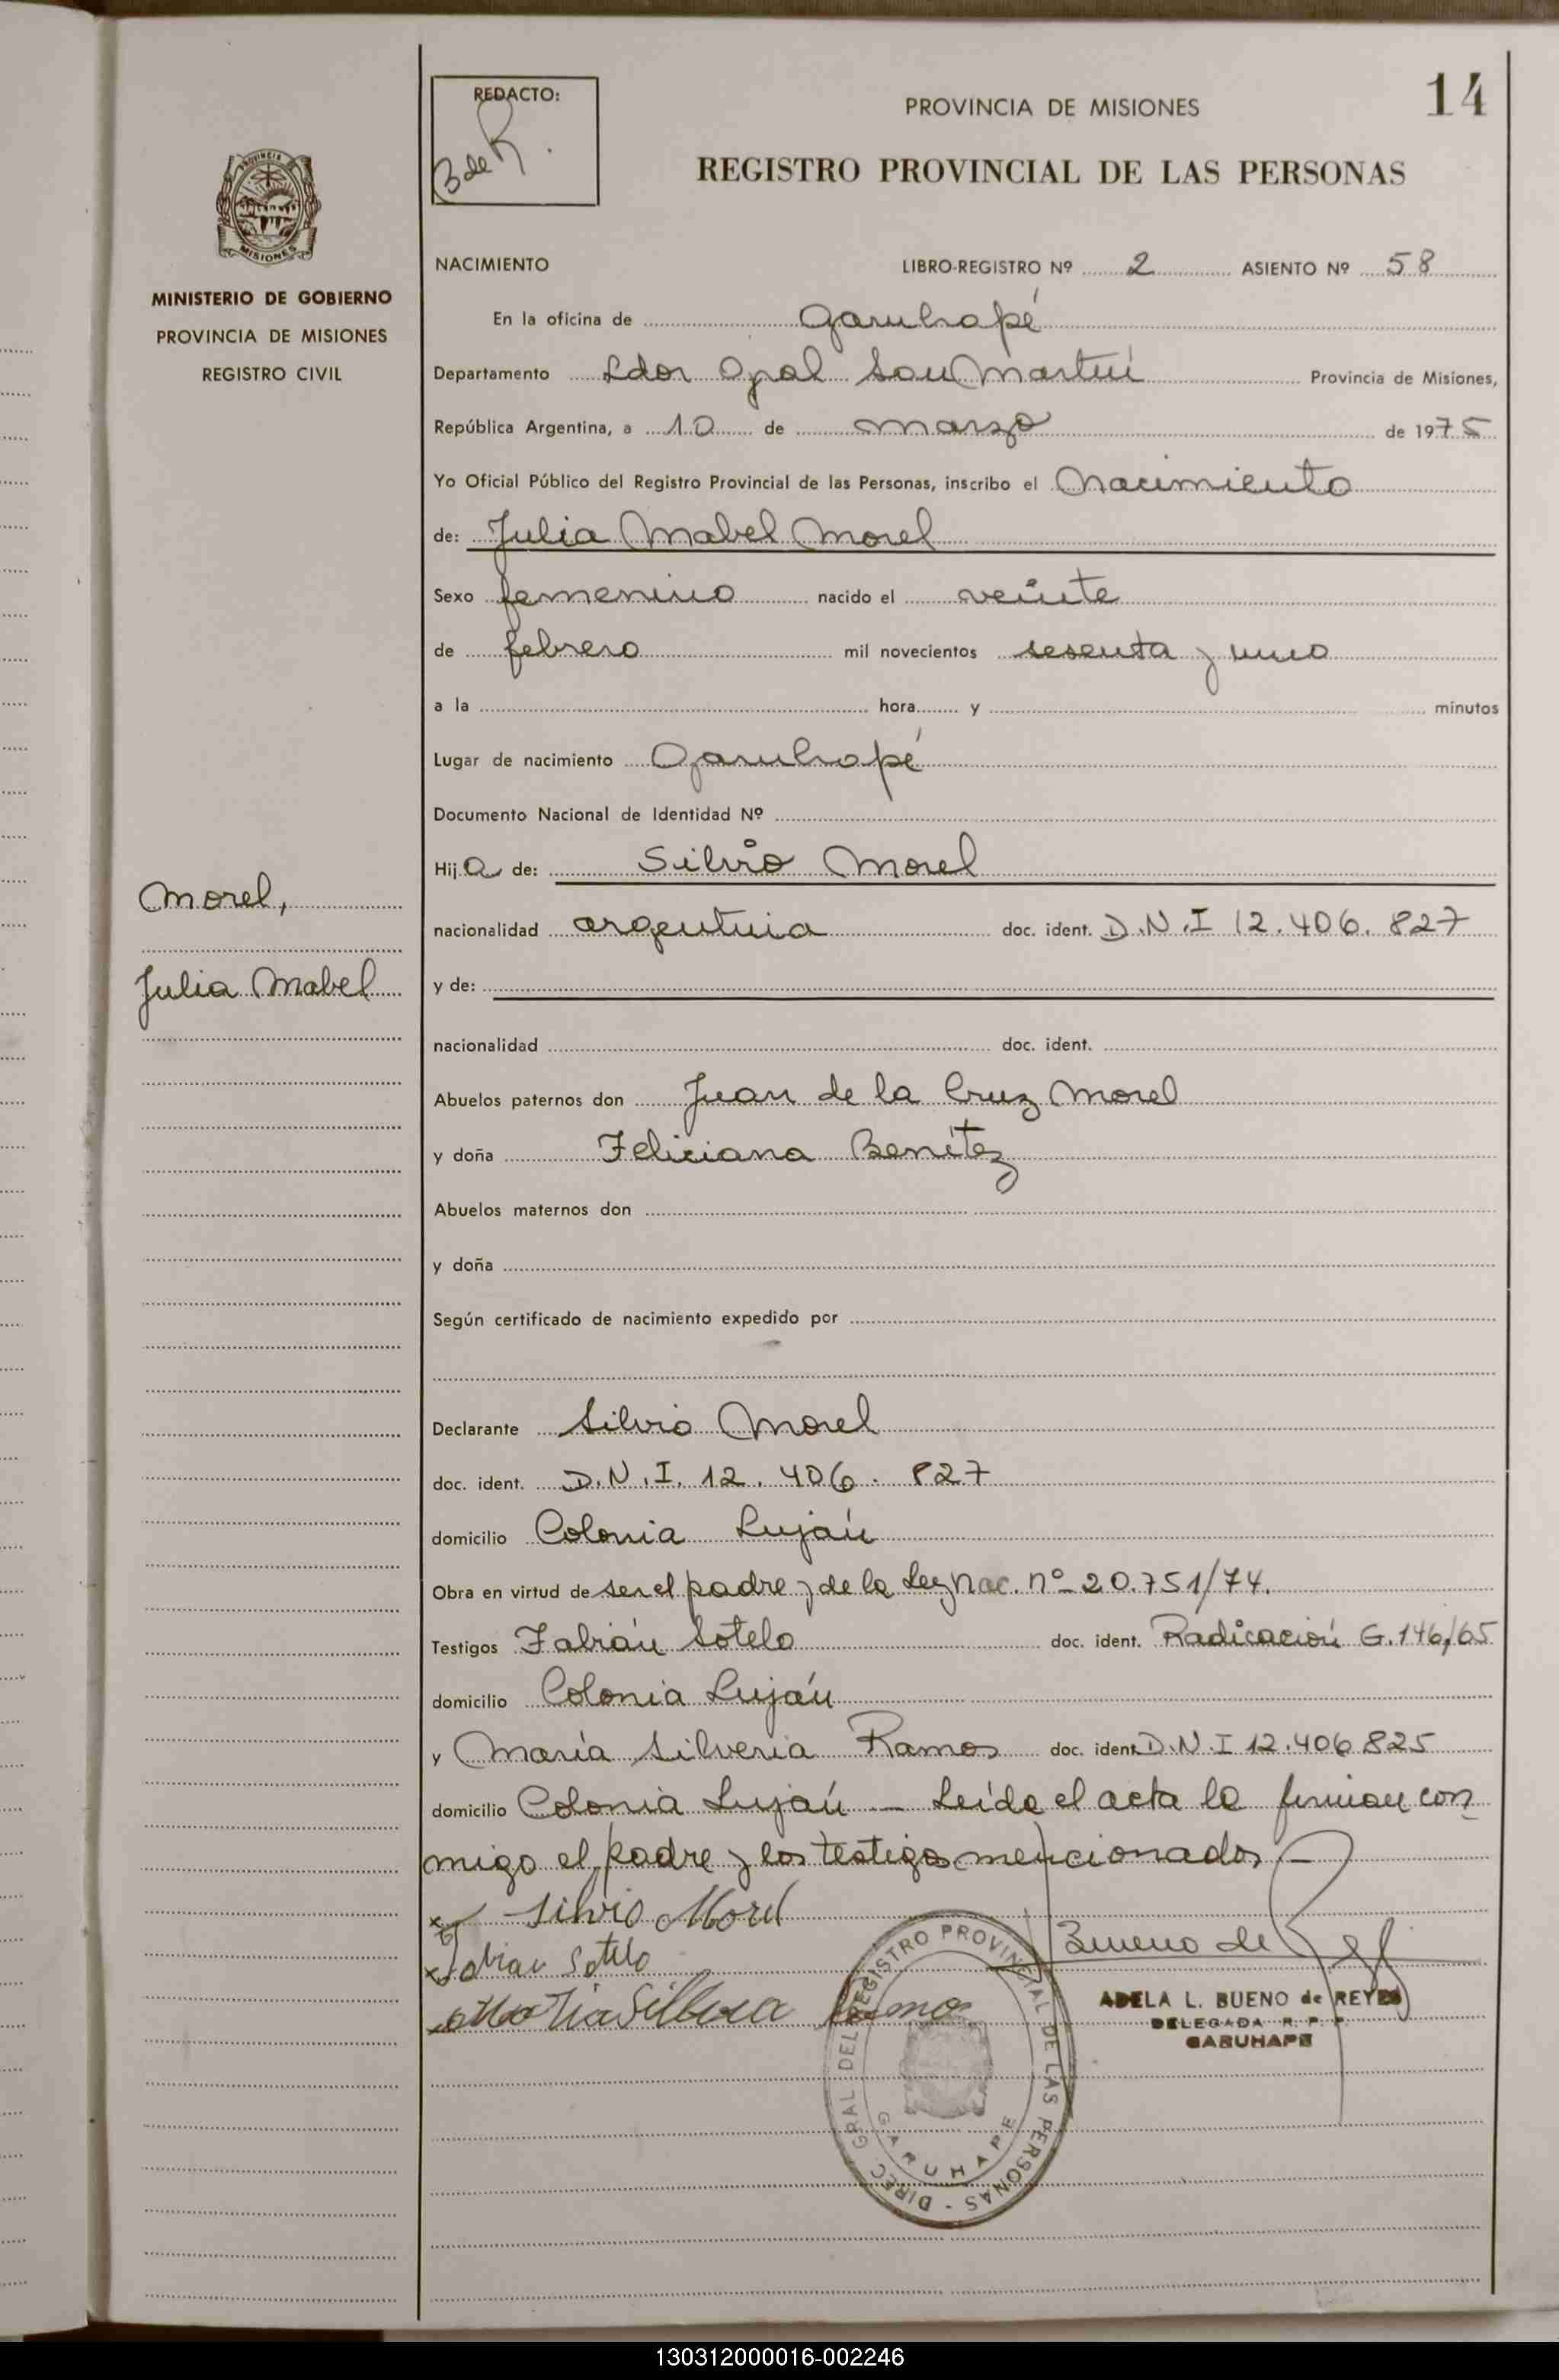 REDACTO:
B de R.
PROVINCIA DE MISIONES
14
REGISTRO PROVINCIAL DE LAS PERSONAS
PROVINCIA DE
MISIONES
MINISTERIO DE GOBIERNO
PROVINCIA DE MISIONES
REGISTRO CIVIL
NACIMIENTO LIBRO-REGISTRO Nº 2 ASIENTO Nº 58
En la oficina de Garuhapé
Departamento Ldor Gral San Martín Provincia de Misiones,
República Argentina, a 10 de marzo de 1975
Yo Oficial Público del Registro Provincial de las Personas, inscribo el Nacimiento
de: Julia Mabel Morel
Sexo femenino nacido el veinte
de febrero mil novecientos sesenta y uno
a la hora y minutos
Lugar de nacimiento Garuhapé
Documento Nacional de Identidad Nº
Hija de: Silvio Morel
Morel,
nacionalidad argentina doc. ident. D.N.I 12.406.827
Julia Mabel
y de:
nacionalidad doc. ident.
Abuelos paternos don Juan de la Cruz Morel
y doña Feliciana Benítez
Abuelos maternos don
y doña
Según certificado de nacimiento expedido por
Declarante Silvio Morel
doc. ident. D.N.I. 12.406.827
domicilio Colonia Luján
Obra en virtud de ser el padre y de la Ley Nac. nº 20.751/74.
Testigos Fabián Sotelo doc. ident. Radicación G.146/65
domicilio Colonia Luján
y María Silveria Ramos doc. ident. D.N.I 12.406.825
domicilio Colonia Luján — Leída el acta la firman con
migo el padre y los testigos mencionados —
Silvio Morel
Fabian Sotelo
Maria Silbera Ramos
Bueno de Rey
ADELA L. BUENO de REYES
DELEGADA R. P. P.
GARUHAPE
DIREC GRAL DEL REGISTRO PROVINCIAL DE LAS PERSONAS -
GARUHAPE
130312000016-002246